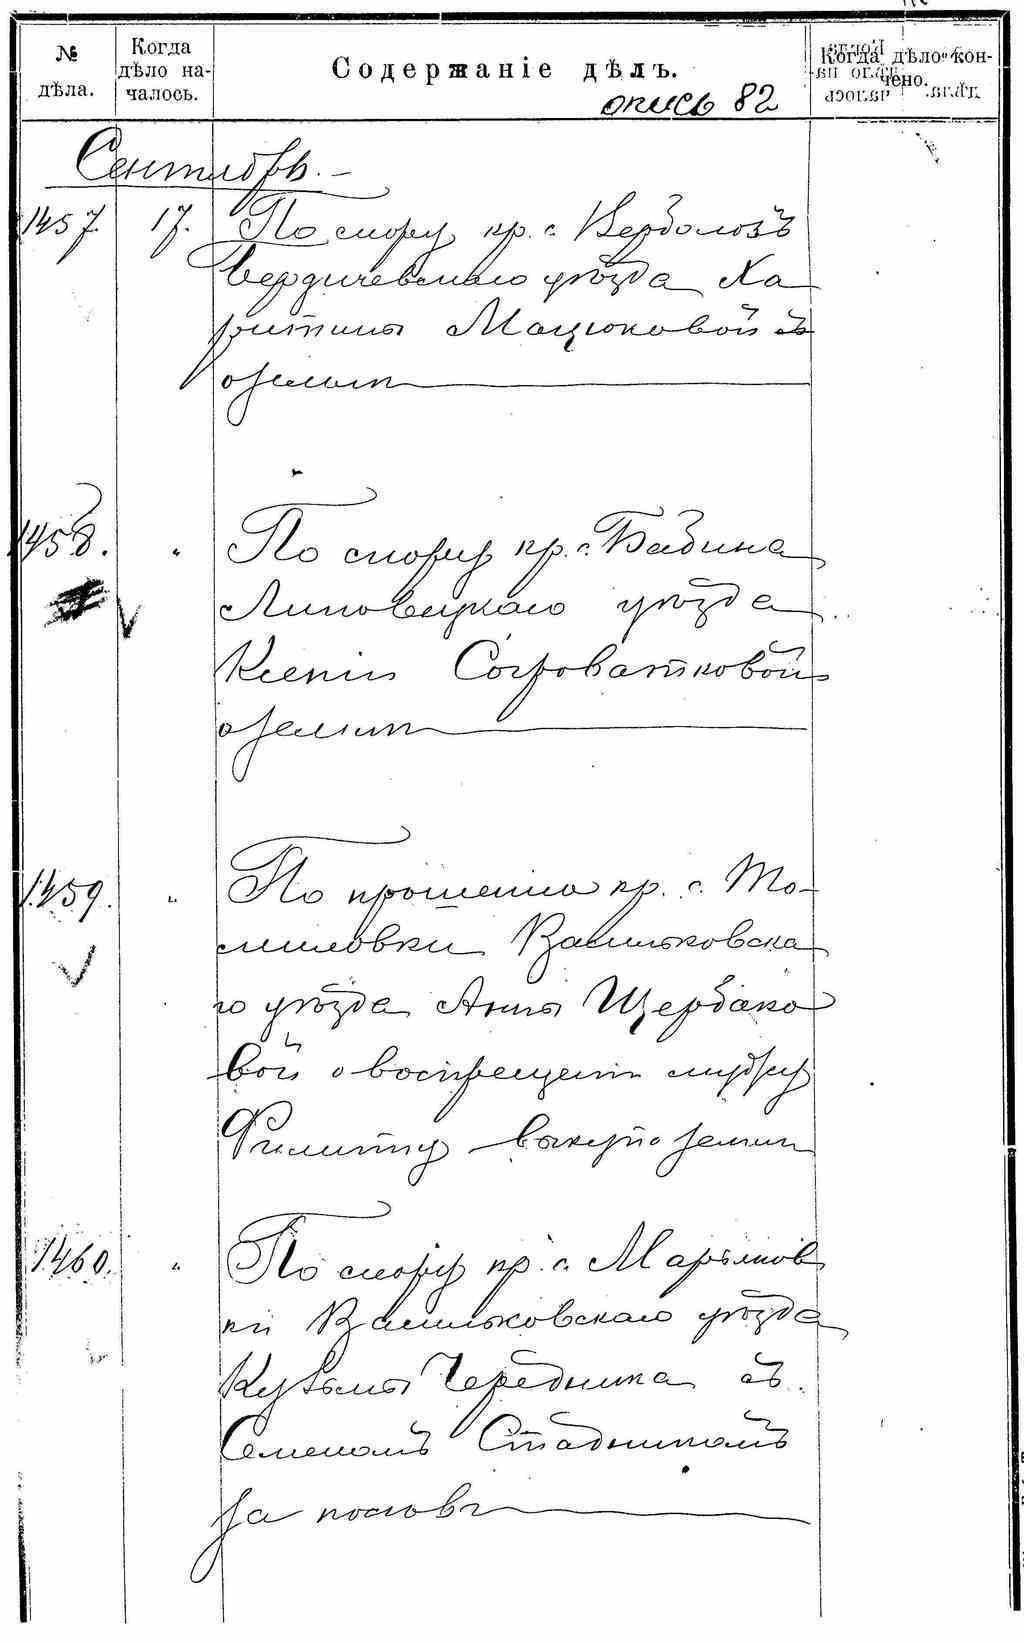 № дѣла.
Когда дѣло началось.
Содержаніе дѣлъ.
Когда дѣло кончено.
опись 82
Сентябрь.
1457. 17. По спору кр. с. Вербологъ
Бердичевскаго уѣзда Ха
ритины Мацюковой съ
о земли
1458. " По спору кр. с. Бабина
Липовецкаго уѣзда
Ксеніи Сыроватковой
о земли
1459. " По прошенію кр. с. То-
миловки Васильковска
го уѣзда Анны Щербако
вой о воспрещеніи мужу
Филиппу выкупа земли
1460. " По спору кр. с. Марьянов
ки Васильковскаго уѣзда
Кузьмы Чередника съ
Семеномъ Стадникомъ
за